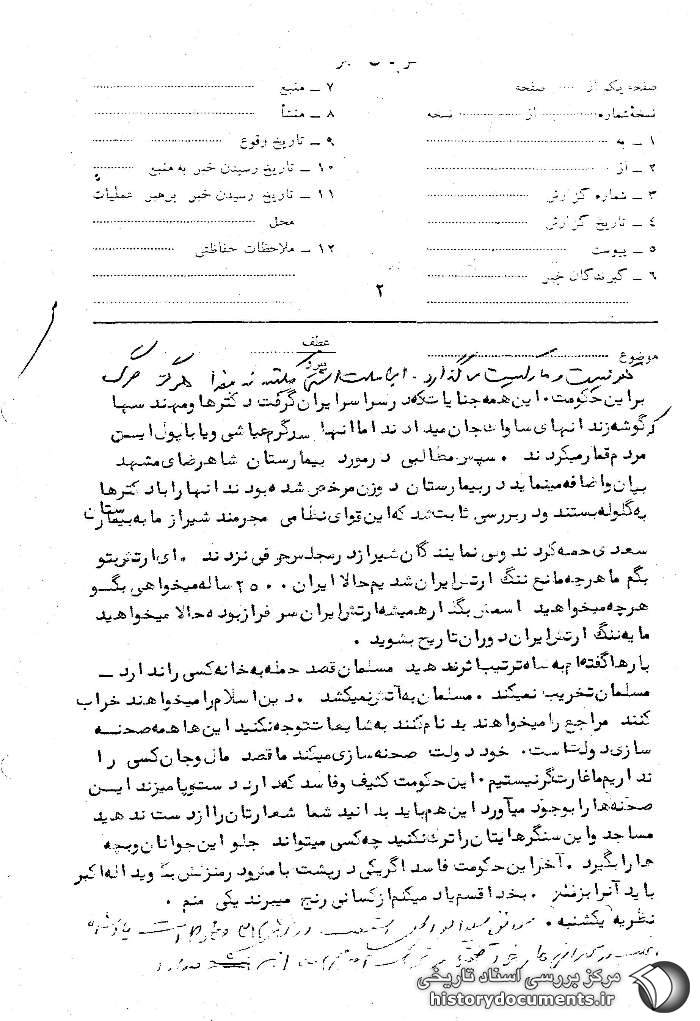 صفحه یک از ........ صفحه
نسخهٔ شماره ........ از ........ نسخه
۱ ـ به
۲ ـ از
۳ ـ شماره گزارش
۴ ـ تاریخ گزارش
۵ ـ پیوست
۶ ـ گیرندگان خبر
۷ ـ منبع
۸ ـ منشأ
۹ ـ تاریخ وقوع
۱۰ ـ تاریخ رسیدن خبر به منبع
۱۱ ـ تاریخ رسیدن خبر برهبر عملیات
محل
۱۲ ـ ملاحظات حفاظتی
۲
موضوع
عطف
پیرو
کمونیست و مارکسیست میگذارد . این ملت هرگز مرگ
براین حکومت . این همه جنایات که در سراسر ایران گرفت دکترها و مهندسها
گوشه زندانهای ساواک جان میدادند اما آنها سرگرم عیاشی و یا با پول این
مردم قمار میکردند . سپس مطالبی در مورد بیمارستان شاهرضای مشهد
بیان و اضافه مینماید در بیمارستان دوزن مرخص شده بودند آنها را با دکترها
به گلوله بستند و در بررسی ثابت شد که این قوای نظامی مجرمند شیراز ما به بیمارستان
سعدی حمله کردند ولی نمایندگان شیراز در مجلس حرفی نزدند . ای ارتش بتو
بگم ما هرچه مانع ننگ ارتش ایران شدیم حالا ایران ۲۵۰۰ ساله میخواهی بگو
هرچه میخواهید اسمش بگذار همیشه ارتش ایران سرفراز بوده حالا میخواهید
مایه ننگ ارتش ایران دوران تاریخ بشوید .
بارها گفته ام به ساه ترتیب اثر ندهید مسلمان قصد حمله به خانه کسی را ندارد ـ
مسلمان تخریب نمیکند . مسلمان به آتش نمیکشد . دین اسلام را میخواهند خراب
کنند مراجع را میخواهند بدنام کنند به شایعات توجه نکنید این ها همه صحنه
سازی دولت است . خود دولت صحنه سازی میکند ما قصد مال و جان کسی را
نداریم ما غارتگر نیستیم . این حکومت کثیف و فاسد که دارد دست و پا میزند این
صحنه ها را بوجود میآورد این هم باید بدانید شما شعارتان را از دست ندهید
مساجد و این سنگرهایتان را ترک نکنید چه کسی میتواند جلو این جوانان و بچه
ها را بگیرد . آخر این حکومت فاسد اگر یکی در پشت بام رود رمزش بگوید اله اکبر
باید آنرا بزنند . بخدا قسم یاد میکنم از کسانی رنج میبرند یکی منم .
نظریه یکشنبه .
مرکز بررسی اسناد تاریخی
historydocuments.ir